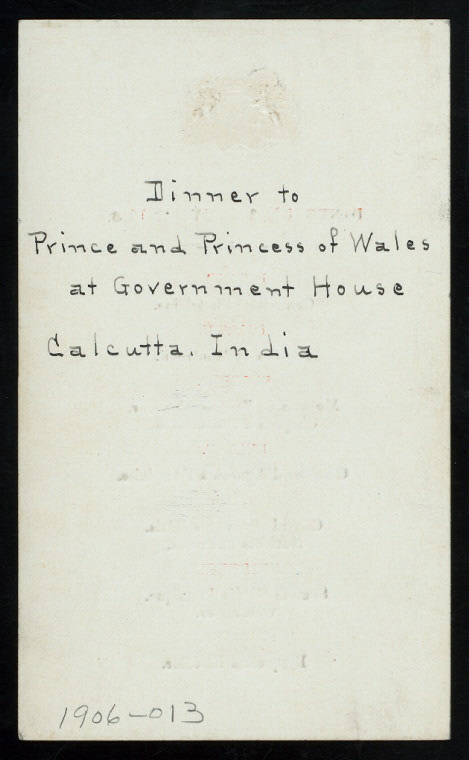 Dinner to
Prince and Princess of Wales
at Government House
Calcutta. India
1906-013